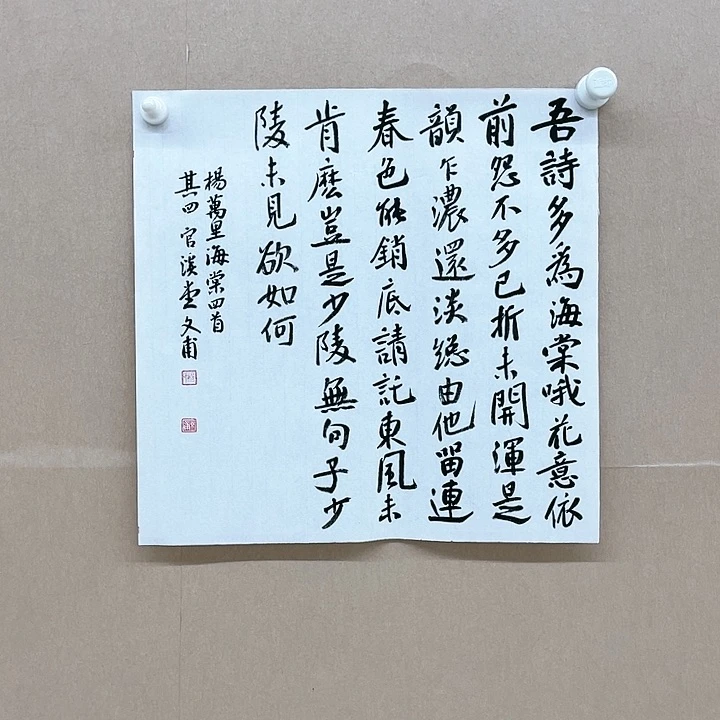 吾詩多為海棠哦花意依
前怨不多已折未開渾是
韻乍濃還淡總由他留連
春色能銷底請託東風未
肯麼豈是少陵無句子少
陵未見欲如何
楊萬里海棠四首
其四 官溪 文甫